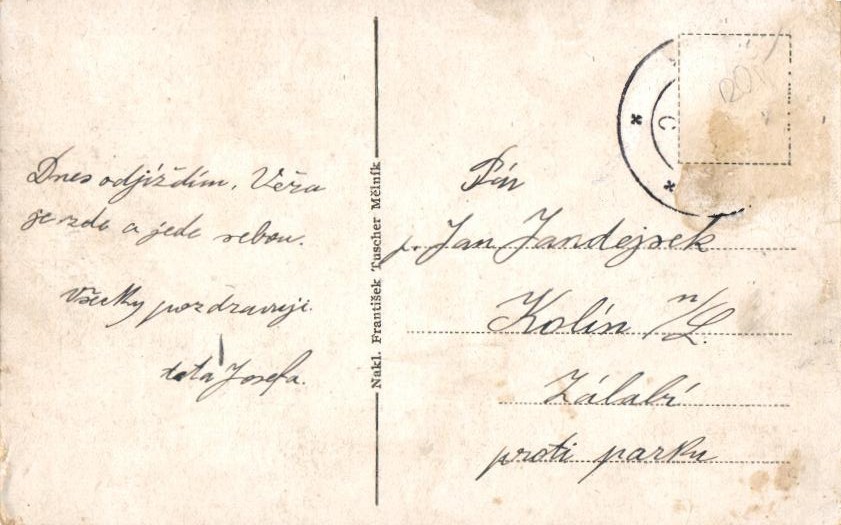 Dnes odjíždím, Věra
je zde a jede sebou.
Všecky pozdravuji.
teta Josefa.
Nakl. František Tuscher Mělník
C
Pán
p. Jan Jandejsek
Kolín n/L.
Zálabí
proti parku